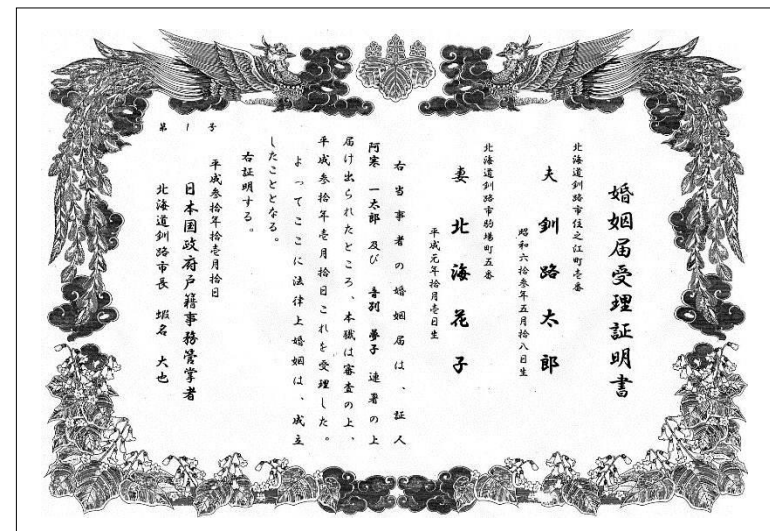 婚姻届受理証明書
北海道釧路市住之江町壱番
夫 釧路太郎
昭和六拾参年五月拾八日生
北海道釧路市駒場町五番
妻 北海花子
平成元年拾月壱日生
右当事者の婚姻届は、証人
阿寒 一太郎 及び 音別 夢子 連署の上
届け出られたところ、本職は審査の上、
平成参拾年壱月拾日これを受理した。
よってここに法律上婚姻は、成立
したこととなる。
右証明する。
平成参拾年拾壱月拾日
日本国政府戸籍事務管掌者
北海道釧路市長 蝦名 大也
第 1 号